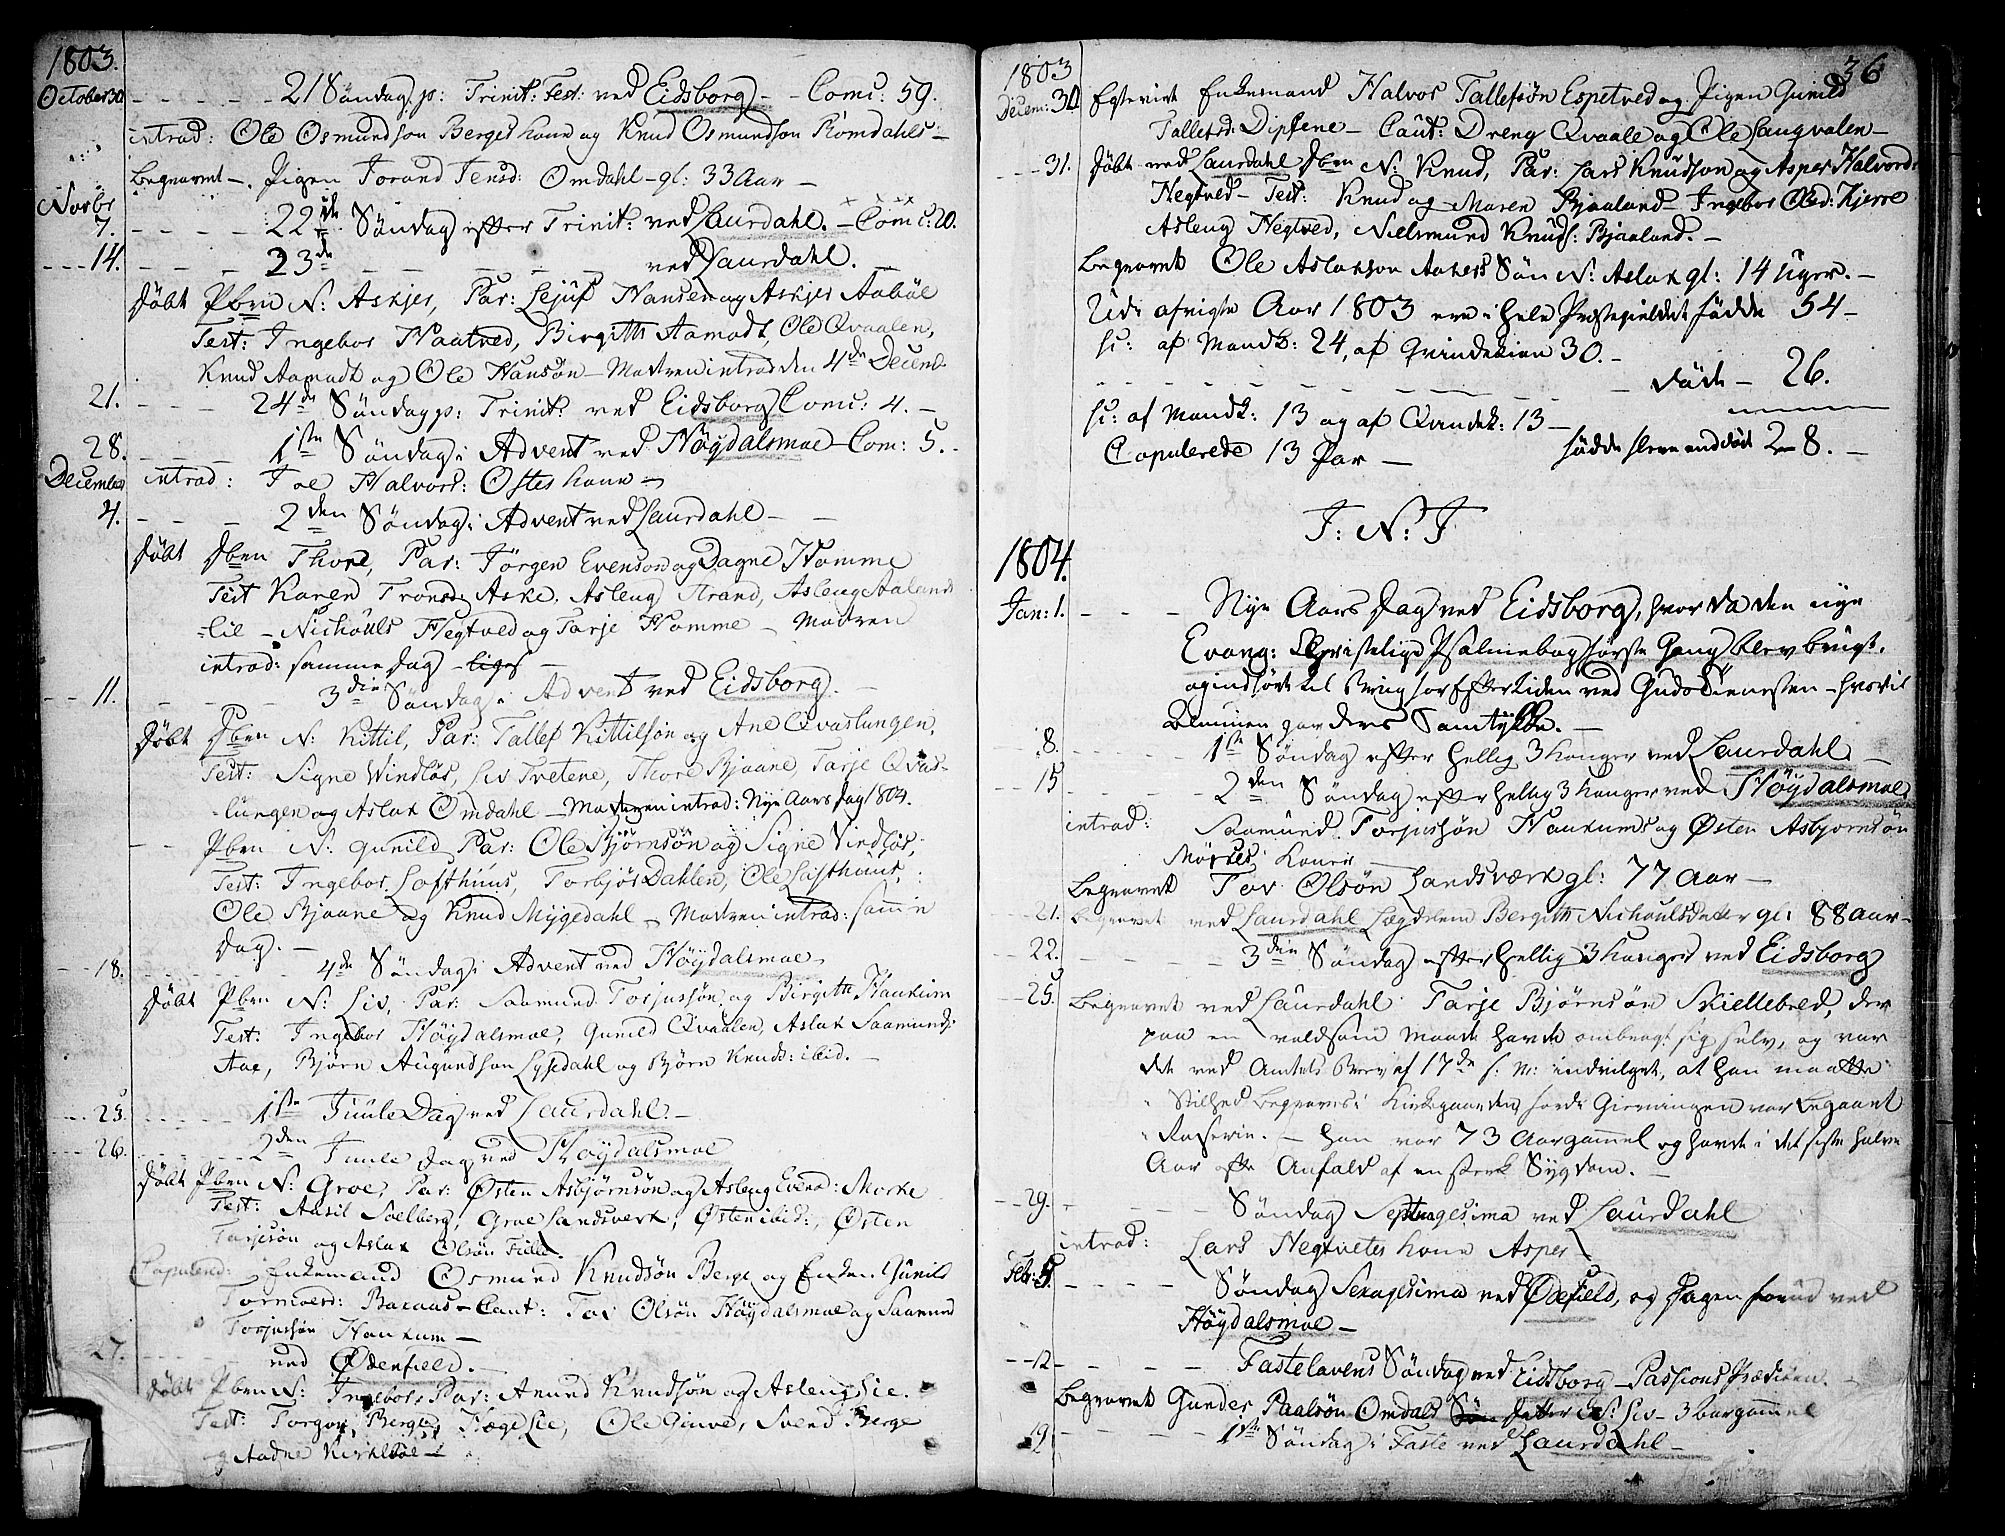 1803.
October 30. - - - - - 21 Søndag p: Trinit: Fest: ved Eidsborg - - Comu: 59.
introd: Ole Osmundson Berges kone og Knud Osmundson Romdahls -
Begravet -. Pigen Torand Jensd: Omdahl - gl: 33 Aar -
Novbr
7. - - - - - 22de Søndag efter Trinit: ved Laurdahl. - Comu: 20.
- - - 14. - - - 23de - - - - ved Laurdahl. -
døbt Pben N: Askjer, Par: Lejuf Hansen og Askjer Aabøe
Test: Ingebor Haatved, Birgitte Aamodt, Ole Qvaalen,
Knud Aamodt og Ole Hansøn - Modren introd den 4de Decemb.
21. - - - 24de Søndag p: Trinit: ved Eidsborg Comu: 4. -
28. - - - 1ste Søndag i Advent ved Høgdalsmoe - Com: 5. -
December introd: Toe Halvord: Ostes kone -
4. - - - 2den Søndag i Advent ved Laurdahl - -
døbt Dben Thore, Par: Jörgen Evenson og Dagne Homme
Test Karen Tronsd: Aske, Asleug Strand, Asleug Aaland
-lie - Nichouls Hegtved og Tarje Homme - Modren
introd: samme dag -
- - 11. - - - 3die Søndag i Advent ved Eidsborg. -
døbt Dben N: Kittil, Par: Tallef Kittilsøn og Ane Qvaslungen,
Test: Signe Windløs, Liv Tvetene, Thore Bjaane, Tarje Qvas-
-lungen og Aslak Omdahl - Modren introd: Nye Aars dag 1804.
- - Pben N: Gunild Par: Ole Bjørnsøn og Signe Vindløs,
Test: Ingebor Lofthuus, Torbjør Dahlen, Ole Lofthuus,
Ole Bjaane og Knud Mygedahl - Modren introd: samme
dag. -
- - 18. - - - 4de Søndag i Advent ved Høydalsmoe -
døbt Pben N: Liv, Par: Saamund Torjussøn og Birgitte Haukum
Test: Ingebor Høgdalsmoe, Gunild Qvaalen, Aslak Saamunds:
Aae, Bjørn Augundson Lysedahl og Bjørn Knuds: ibid. -
- - 25. - - - 1ste Juule Dag ved Laurdahl -
- - 26. - - - 2den Juule dag ved Høydalsmoe
døbt Pben N: Groe, Par: Østen Asbjørnsøn og Asleug Evend: Morke
Test: Aasil Soelberg, Groe Landsverk, Østen ibid:, Østen
Tarjesøn og Aslak Olsøn
Copulered: Enkemand Osmund Knudsøn Berge og Enken Gunild
Tormoesd: - Caut: Tov Olsøn Høydalsmoe og Saamund
Torjussøn Haukum -
27. - - - ved Ødenfield. -
døbt Pben N: Ingebor, Par: Anund Knudsøn og Asleug Lie.
Test: Torgon Berge, Hæge Lie, Ole Ginved, Svend Berge
og Aadne
36
1803
Decem: 30 Egteviet Enkemand Halvor Tallefsøn Espetved og Pigen Gunild
Tallefsd: Dipsene - Caut: Dreng Qvaale og Ole Laugvalen -
- - - 31. døbt ved Laurdahl Dben N: Knud, Par: Lars Knudson og Asper Halvords:
Hegtved - Test: Knud og Maren Bjaaland - Ingebor Oled: Kjerre
Asleug Hegtved, Nielsmund Knuds: Bjaaland. -
Begravet Ole Aslakson Aakers Søn N: Aslak gl: 14 Uger. -
Udi afvigte Aar 1803 ere i hele Præstegieldet fødde 54 -
sc: af Mandk: 24, af Qvindekien 30. -
- - - - - - - døde - 26.
sc: af Mandk: 13 og af Qvindek: 13 -
Copulerede 13 Par - fødde flere end døde 28. -
J: N: J
1804.
Jan: 1. - - - Nye Aars Dag ved Eidsborg, hvor da den nye
Evang: Christelige Psalmebog første Gang blev brugt,
og indført til Brug for Eftertiden ved Gudstienesten - hvortil
Almuen gav deres Samtykke. -
8. - - - 1ste Søndag efter hellig 3 konger ved Laurdahl -
- - 15 - - - 2den Søndag efter hellig 3 konger ved Høydalsmoe
introd: Saamund Torjussøn Haukums og Østen Asbjornsøn
Morkes koner -
Begravet Tov Olsøn Landsværk gl: 77 Aar -
- - 21. Begravet ved Laurdahl Lægdslem Bergitte Nichoulsdatter gl: 88 Aar -
- - 22. - - - 3die Søndag efter hellig 3 konger ved Eidsborg
- - 25. Begravet ved Laurdahl Tarje Bjørnsøn Skiellebred, der
paa en voldsom Maade havde ombragt sig selv, og var
det ved Amtets Brev af 17de h: m: indvilget, at han maatte
i Stilhed begraves i Kirkegaarden, fordi Gierningen var begaaet
i Raserie. - han var 73 Aar gammel og havde i det siste halve
Aar ofte Anfald af en sterk Sygdom. -
- - 29. - - - Søndag Septuagesima ved Laurdahl
introd: Lars Hegtvetes kone Asper
Feb: 5. - - - Søndag Sexagesima ved Ødefield, og Dagen forud ved
Høydalsmoe -
- - 12 - - - Fastelavens Søndag ved Eidsborg - Passions Prædiken. -
Begravet Gunder Paalsøn Omdals datter N: Liv - 3 bar gammel
19 - - - 1ste Søndag i Faste ved Laurdahl -